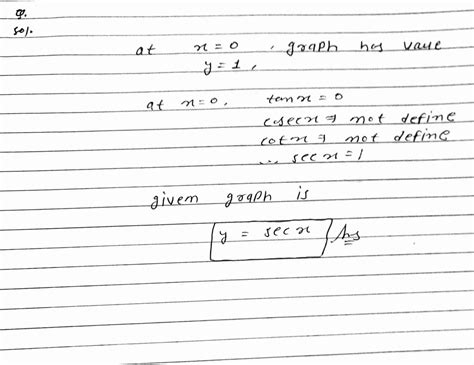 Q.
Sol.
at x=0 , graph has value
y=1,
at x=0, tanx=0
cosecx⇒ not define
cotx⇒ not define
∴ secx=1
given graph is
y = secx Ans